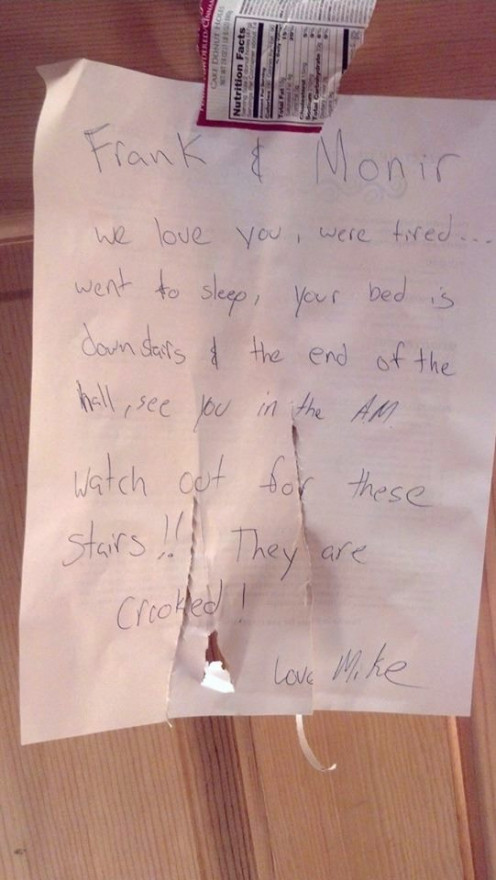 CAKE DONUT HOLE
Nutrition Facts
Total Fat
Total Carbohydrate
Frank & Monir
we love you, were tired...
went to sleep, your bed is
downstairs & the end of the
hall, see you in the AM
Watch out for these
stairs!! They are
Crooked!
Love Mike